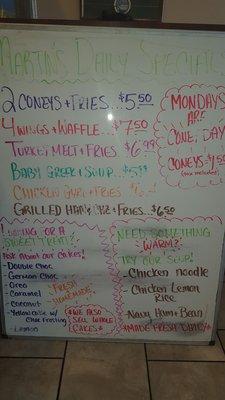 Martin's Daily Special
2 Coneys + Fries... $5.50
4 Wings + Waffle... $7.50
Turkey Melt + Fries $6.99
Baby Greek + Soup... $5.99
Chicken Gyro + Fries
Grilled Ham/Chz + Fries... $6.50
Mondays
Are
Coney Day
Coneys
(tax included)
Looking for a
Sweet Treat?
Ask About our Cakes!
- Double Choc
- German Choc
- Oreo
- Caramel
- Coconut
- Yellow cake w/
Choc Frosting
- Lemon
*Fresh
Homemade*
*We also
Sell Whole
Cakes*
Need Something
Warm?
Try our Soup!
- Chicken Noodle
- Chicken Lemon
Rice
- Navy Ham + Bean
*Made Fresh Daily*